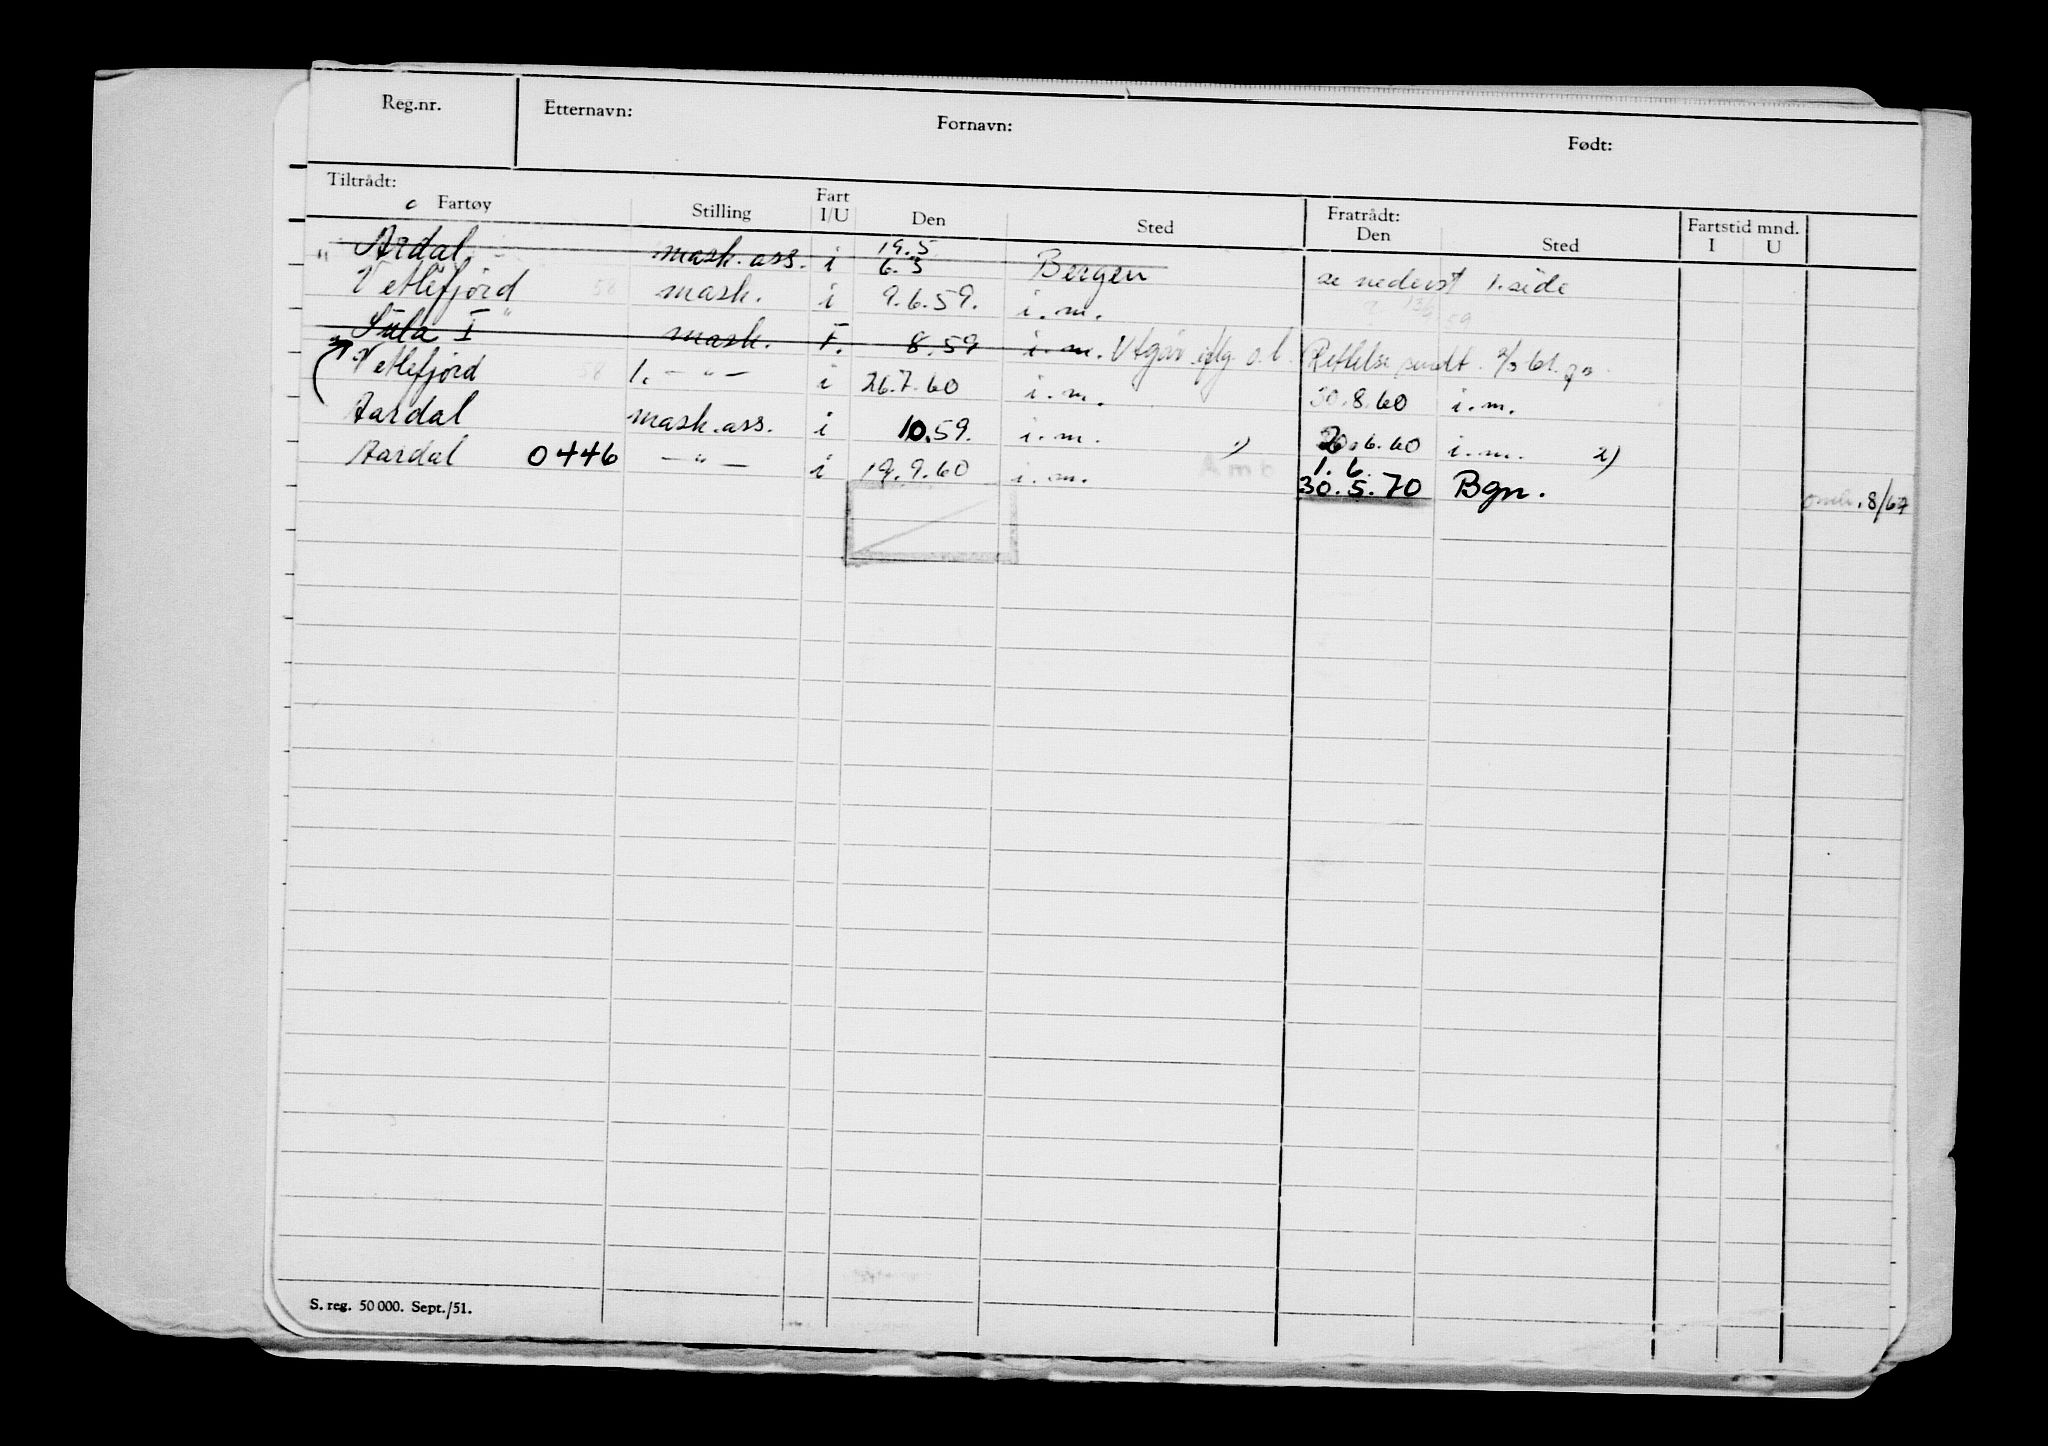 Reg.nr. Etternavn: Fornavn: Født:
Tiltrådt: Fart Fratrådt: Fartstid mnd.
Fartøy Stilling I/U Den Sted Den Sted I U
19.5
" Årdal mask. ass. i 6.5 Bergen se nederst 1. side
Vetlefjord 58 mask. i 9.6.59. i.m.
Sula I " mask. F. 8.59 i.m. Utgår iflg. o.l. Rettelse sendt
Vetlefjord 58 1. — " — i 26.7.60 i.m. 30.8.60 i.m.
Aardal mask.ass. i 10.59. i.m. 1) 20.6.60 i.m. 2)
Aardal 0446 — " — i 19.9.60 i.m. 1.6.
30.5.70 Bgn. 8/67
S. reg. 50 000. Sept./51.